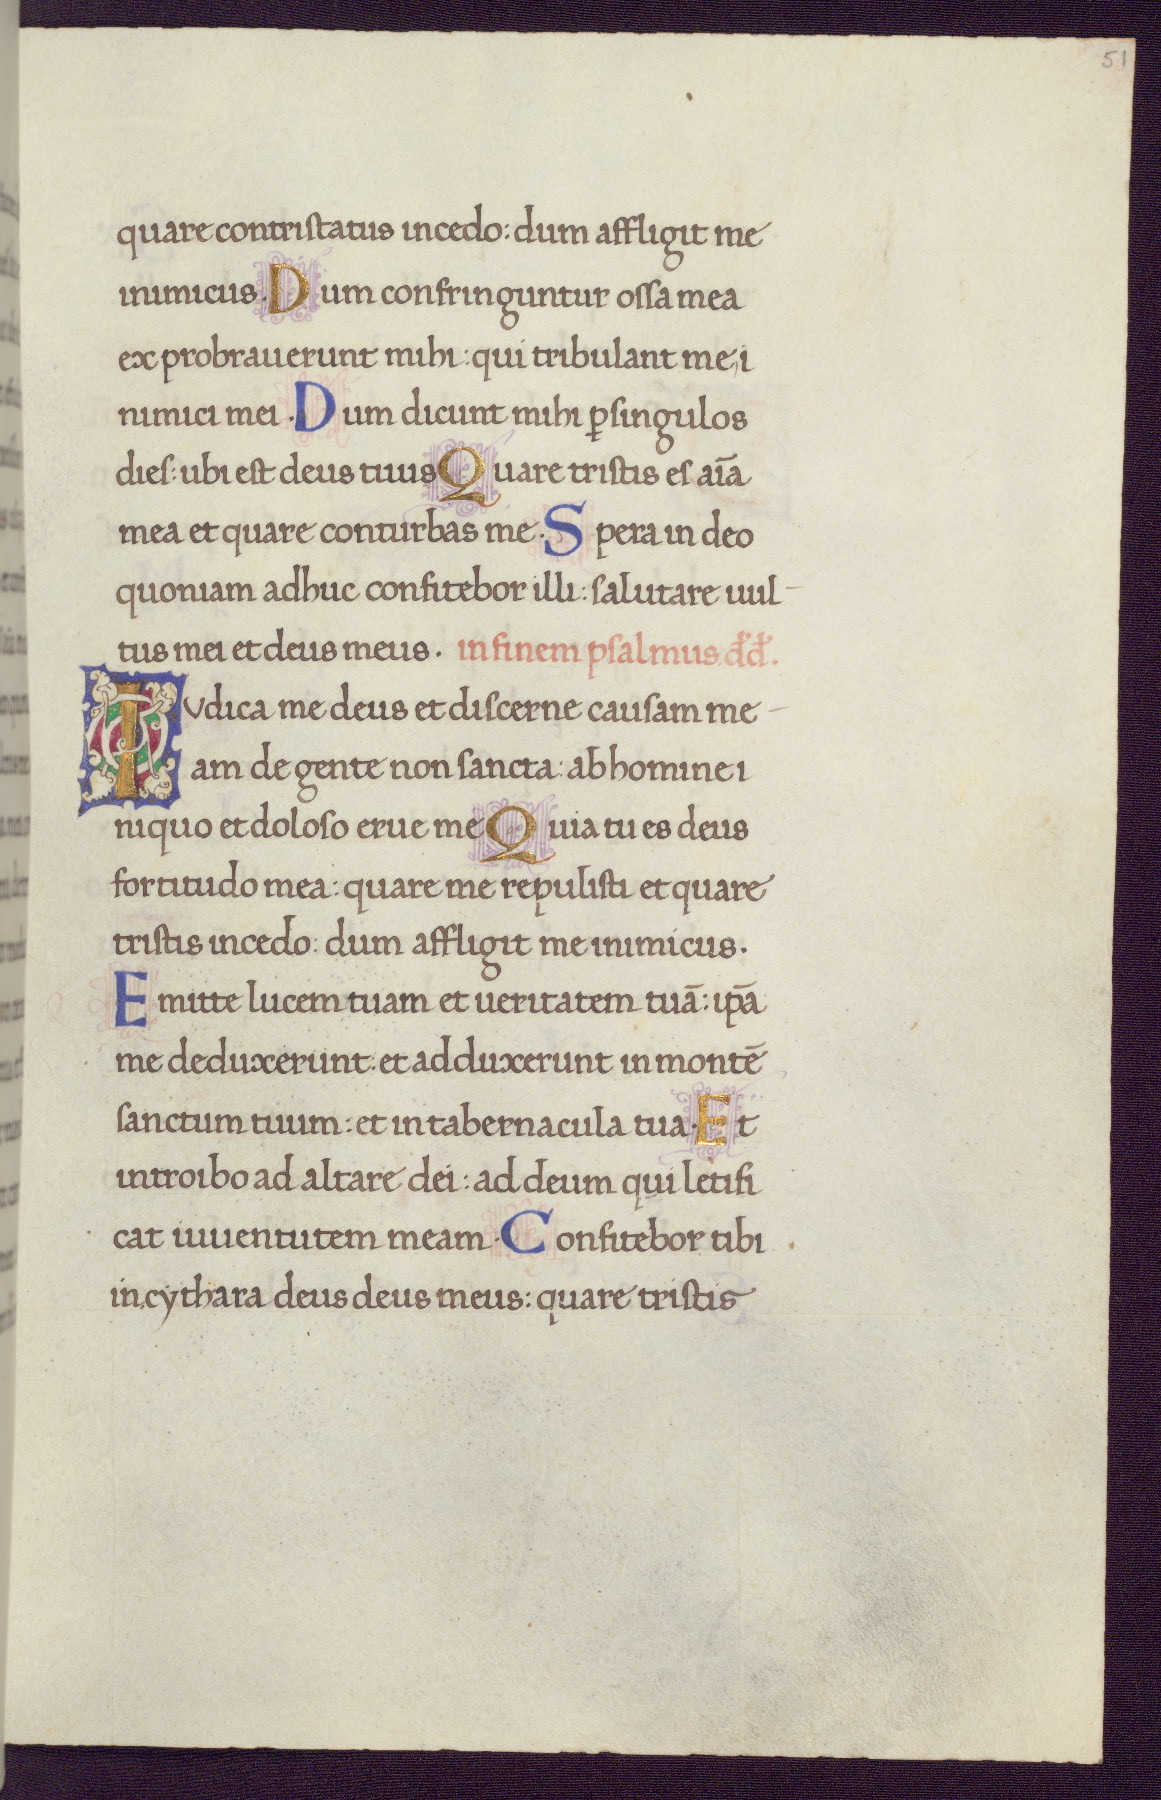 51
quare contristatus incedo: dum affligit me
inimicus. Dum confringuntur ossa mea
exprobrauerunt mihi: qui tribulant me, i
nimici mei. Dum dicunt mihi ꝑ singulos
dies: ubi est deus tuus Quare tristis es aīa
mea et quare conturbas me. Spera in deo
quoniam adhuc confitebor illi: salutare uul-
tus mei et deus meus. in finem psalmus dd̄.
IVdica me deus et discerne causam me-
am de gente non sancta: ab homine i
niquo et doloso erue me Quia tu es deus
fortitudo mea: quare me repulisti et quare
tristis incedo: dum affligit me inimicus.
Emitte lucem tuam et ueritatem tuā: ip̄a
me deduxerunt: et adduxerunt in montē
sanctum tuum: et in tabernacula tua. Et
introibo ad altare dei: ad deum qui letifi
cat iuuentutem meam. Confitebor tibi
in cythara deus deus meus: quare tristis